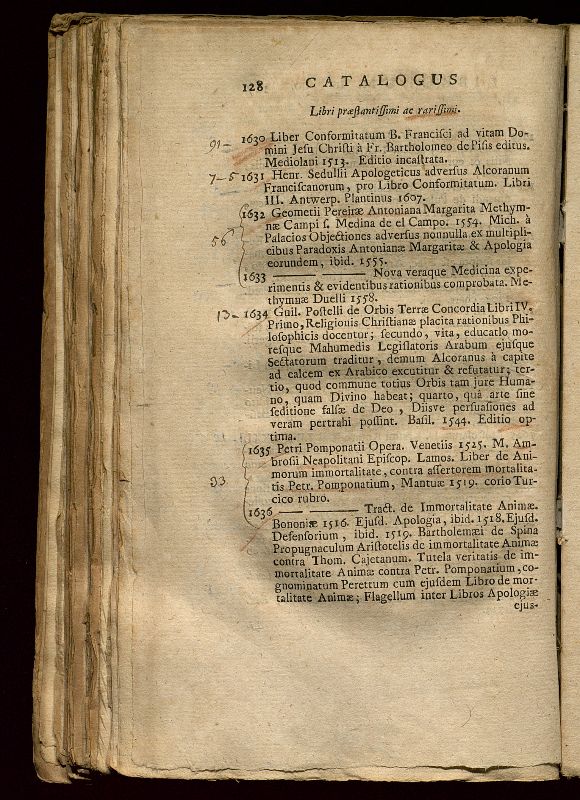 128 CATALOGUS
Libri præstantissimi ac rarissimi.
91- 1630 Liber Conformitatum B. Francisci ad vitam Do-
mini Jesu Christi à Fr. Bartholomeo de Pisis editus.
Mediolani 1513. Editio incastrata.
7-5 1631 Henr. Sedullii Apologeticus adversus Alcoranum
Franciscanorum, pro Libro Conformitatum. Libri
III. Antwerp. Plantinus 1607.
1632 Geometii Pereiræ Antoniana Margarita Methym-
næ Campi s. Medina de el Campo. 1554. Mich. à
56 Palacios Objectiones adversus nonnulla ex multipli-
cibus Paradoxis Antonianæ Margaritæ & Apologia
eorundem, ibid. 1555.
1633 ——— ——— Nova veraque Medicina expe-
rimentis & evidentibus rationibus comprobata. Me-
thymnæ Duelli 1558.
13- 1634 Guil. Postelli de Orbis Terræ Concordia Libri IV.
Primo, Religionis Christianæ placita rationibus Phi-
losophicis docentur; secundo, vita, educatio mo-
resque Mahumedis Legislatoris Arabum ejusque
Sectatorum traditur, demum Alcoranus à capite
ad calcem ex Arabico excutitur & refutatur; ter-
tio, quod commune totius Orbis tam jure Huma-
no, quam Divino habeat; quarto, quâ arte sine
seditione falsæ de Deo, Diisve persuasiones ad
veram pertrahi possint. Basil. 1544. Editio op-
tima.
1635 Petri Pomponatii Opera. Venetiis 1525. M. Am-
brosii Neapolitani Episcop. Lamos. Liber de Ani-
morum immortalitate, contra assertorem mortalita-
33 tis Petr. Pomponatium, Mantuæ 1519. corio Tur-
cico rubro.
1636 ——— ——— Tract. de Immortalitate Animæ.
Bononiæ 1516. Ejusd. Apologia, ibid. 1518. Ejusd.
Defensorium, ibid. 1519. Bartholemæi de Spina
Propugnaculum Aristotelis de immortalitate Animæ
contra Thom. Cajetanum. Tutela veritatis de im-
mortalitate Animæ contra Petr. Pomponatium, co-
gnominatum Perettum cum ejusdem Libro de mor-
talitate Animæ; Flagellum inter Libros Apologiæ
ejus-